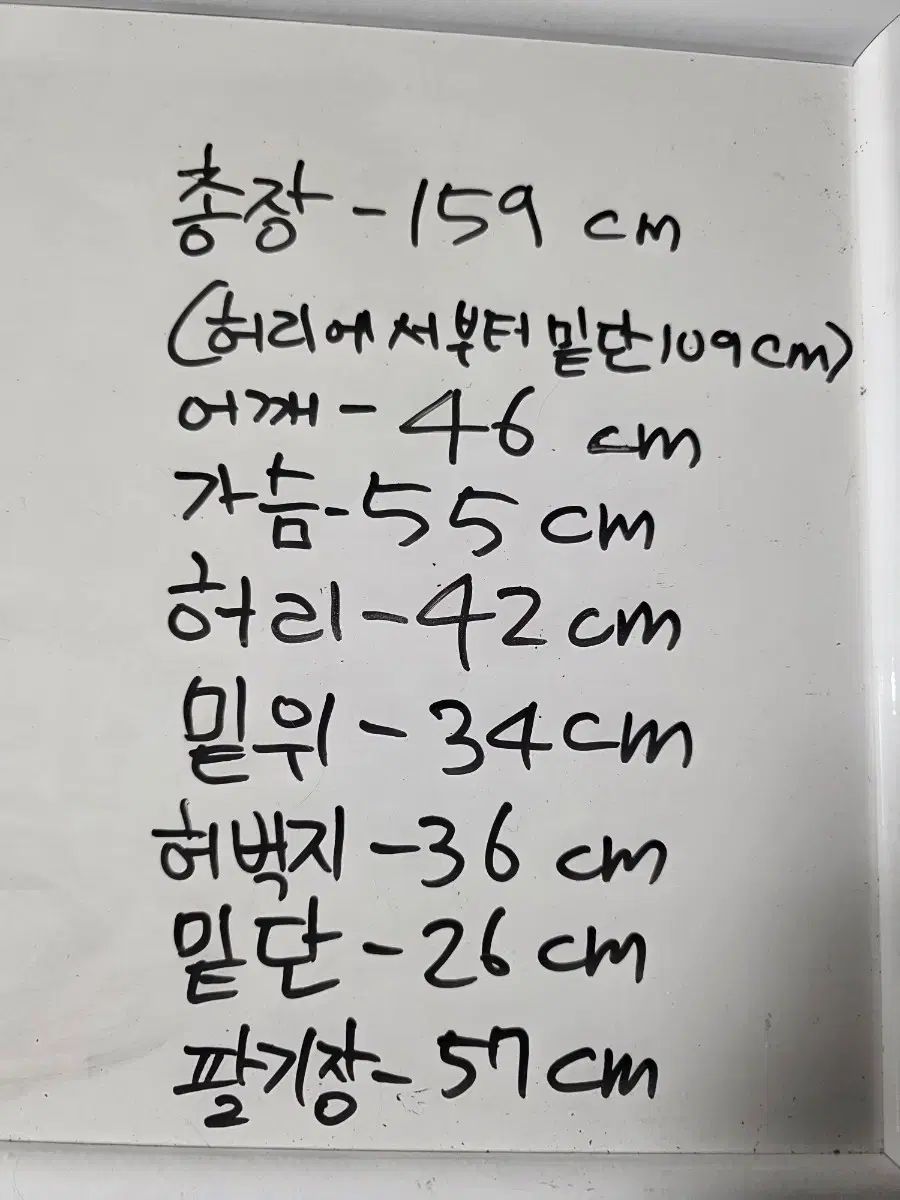 총장 - 159 cm
(허리에서부터 밑단 109cm)
어깨 - 46 cm
가슴 - 55 cm
허리 - 42 cm
밑위 - 34cm
허벅지 - 36 cm
밑단 - 26 cm
팔기장 - 57 cm